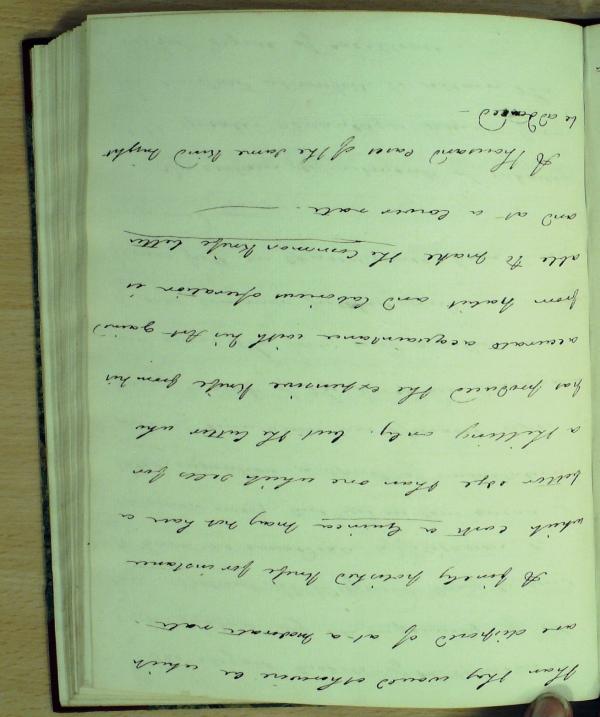 than they would otherwise be which
are disposed of at a moderate rate.
A finely polished Knife for instance
which cost a Guinea may not have a
better edge than one which sells for
a shilling only. but the Cutler who
has produced the expensive Knife from his
accurate acquaintance with his Art gained
from habit and laborious operation is
able to make the Common Knife better
and at a lower rate.
A thousand Cases of the same kind might
be adduced —